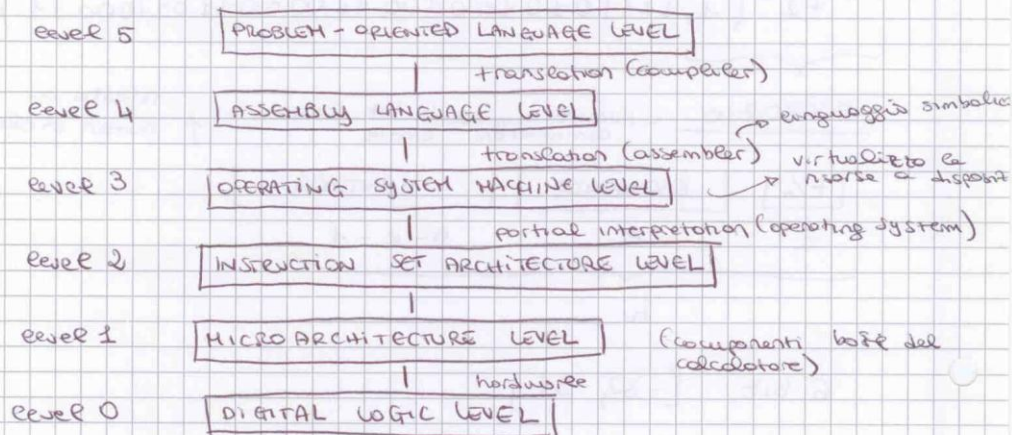 level 5 PROBLEM - ORIENTED LANGUAGE LEVEL
translation (compiler)
level 4 ASSEMBLY LANGUAGE LEVEL
linguaggio simbolic
translation (assembler)
virtualizzo le
level 3 OPERATING SYSTEM MACHINE LEVEL
risorse a disposit
partial interpretation (operating system)
level 2 INSTRUCTION SET ARCHITECTURE LEVEL
level 1 MICROARCHITECTURE LEVEL
(componenti base del
calcolatore)
hardware
level 0 DIGITAL LOGIC LEVEL